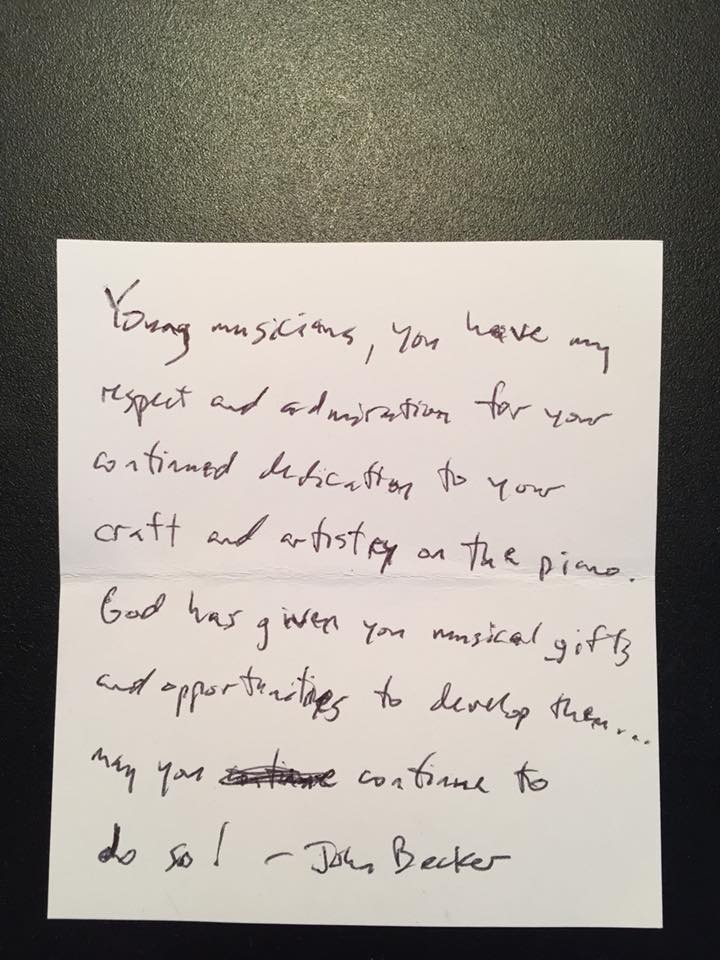 Young musicians, you have my
respect and admiration for your
continued dedication to your
craft and artistry on the piano.
God has given you musical gifts
and opportunities to develop them...
may you continue to
do so! - John Becker